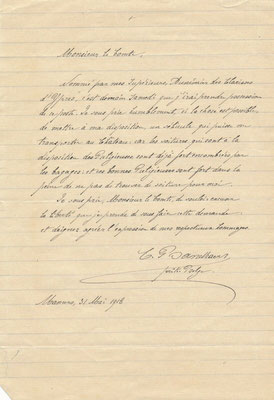 Monsieur le Comte,
Nommé par mes Supérieurs, Aumônier des
d'Ypres, c'est demain Samedi que j'irai prendre possession
de ce poste. Je vous prie humblement, si la chose est possible
de mettre à ma disposition, un véhicule qui puisse me
transporter au Château: car les voitures qui sont à la
disposition des Religieuses sont déjà fort encombrées par
les bagages, et ces bonnes Religieuses sont fort dans la
peine de ne pas trouver de voiture pour moi.
Je vous prie, Monsieur le Comte, de vouloir excuser
la liberté que je prends de vous faire cette demande
et daignez agréer l'expression de mes respectueux hommages.
C.
Watou, 31 Mai 1918